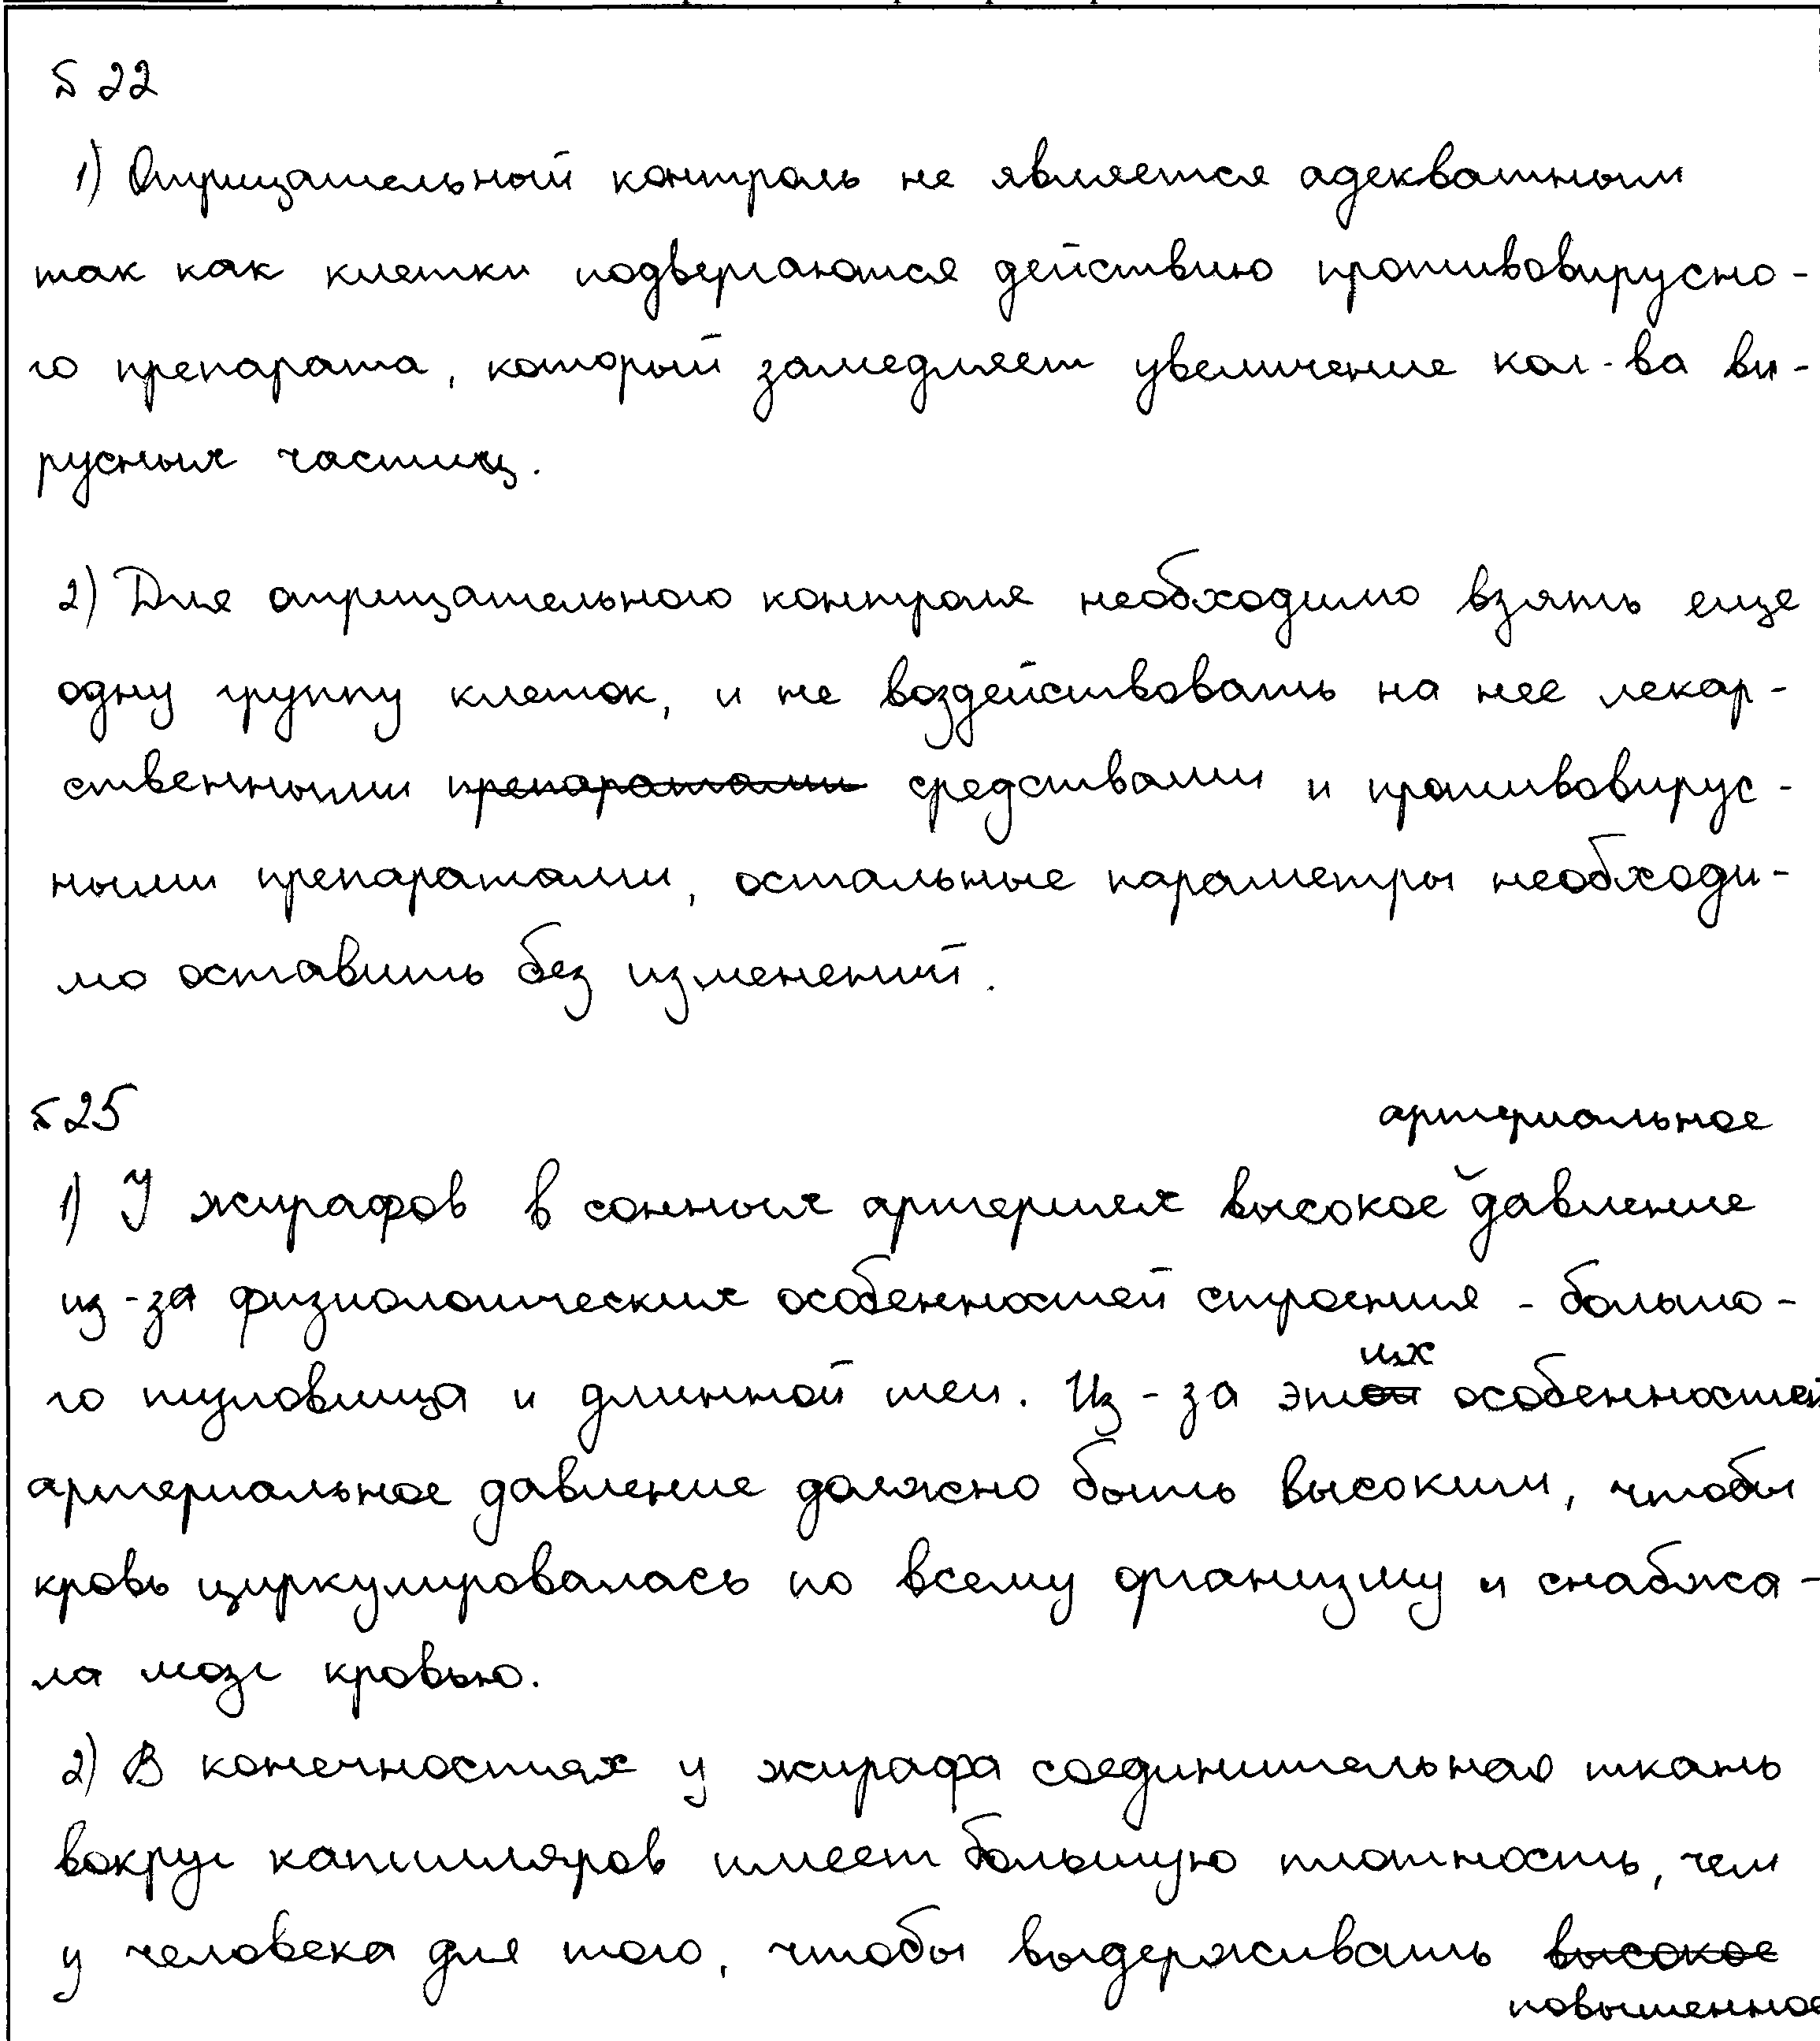 № 22
1) Отрицательный контроль не является адекватным
так как клетки подвергаются действию противовирусно-
го препарата, который замедляет увеличение кол-ва ви-
русных частиц.
2) Для отрицательного контроля необходимо взять еще
одну группу клеток, и не воздействовать на нее лекар-
ственными препаратами средствами и противовирус-
ными препаратами, остальные параметры необходи-
мо оставить без изменений.
№ 25
артериальное
1) У жирафов в сонных артериях высокое давление
из-за физиологических особенностей строения - большо-
го туловища и длинной шеи. Из-за этих особенностей
артериальное давление должно быть высоким, чтобы
кровь циркулировалась по всему организму и снабжа-
ла мозг кровью.
2) В конечностях у жирафа соединительная ткань
вокруг капилляров имеет большую плотность, чем
у человека для того, чтобы выдерживать высокое
повышенное